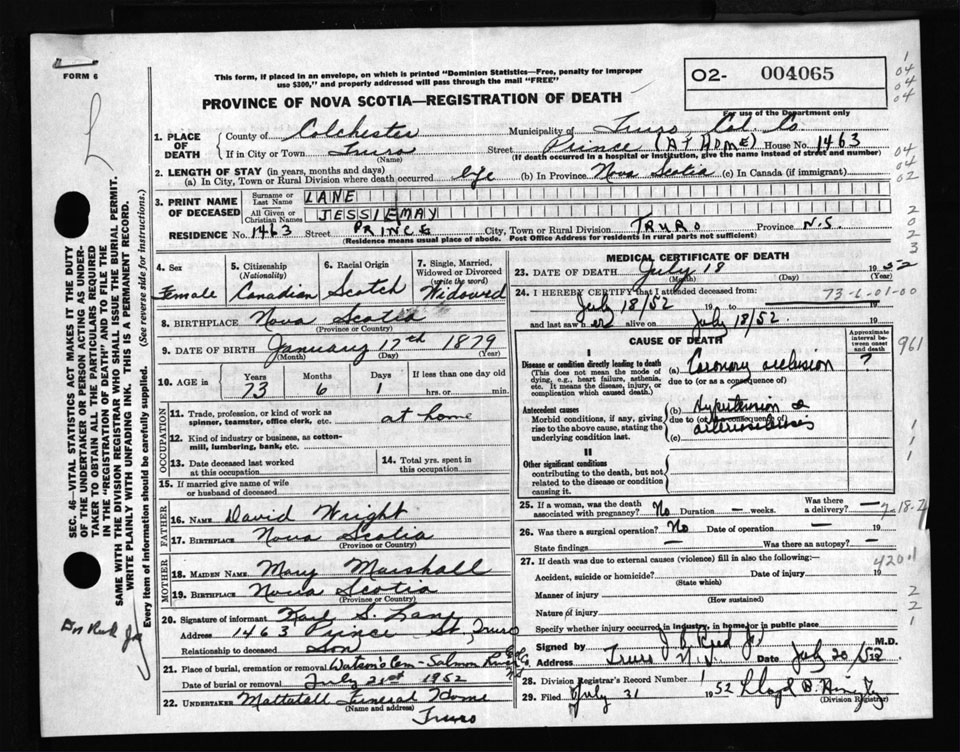 FORM 6
This form, if placed in an envelope, on which is printed "Dominion Statistics—Free, penalty for improper
use $300," and properly addressed will pass through the mail "FREE"
O2- 004065
PROVINCE OF NOVA SCOTIA—REGISTRATION OF DEATH
For use of the Department only
1. PLACE OF DEATH
County of Colchester Municipality of Truro, Col. Co
If in City or Town Truro Street Prince (AT HOME) House No. 1463
(Name) (If death occurred in a hospital or institution, give the name instead of street and number)
2. LENGTH OF STAY (in years, months and days)
(a) In City, Town or Rural Division where death occurred life (b) In Province Nova Scotia (c) In Canada (if immigrant)
3. PRINT NAME OF DECEASED
Surname or Last Name LANE
All Given or Christian Names JESSIE MAY
RESIDENCE No. 1463 Street PRINCE City, Town or Rural Division TRURO Province N.S.
(Residence means usual place of abode. Post Office Address for residents in rural parts not sufficient)
4. Sex Female
5. Citizenship (Nationality) Canadian
6. Racial Origin Scotch
7. Single, Married, Widowed or Divorced (write the word) Widowed
8. BIRTHPLACE Nova Scotia
(Province or Country)
9. DATE OF BIRTH January 17th 1879
(Month) (Day) (Year)
10. AGE in Years 73 Months 6 Days 1 If less than one day old hrs. or min.
OCCUPATION
11. Trade, profession, or kind of work as spinner, teamster, office clerk, etc. at home
12. Kind of industry or business, as cotton-mill, lumbering, bank, etc.
13. Date deceased last worked at this occupation
14. Total yrs. spent in this occupation
15. If married give name of wife or husband of deceased
FATHER
16. NAME David Wright
17. BIRTHPLACE Nova Scotia
(Province or Country)
MOTHER
18. MAIDEN NAME Mary Marshall
19. BIRTHPLACE Nova Scotia
(Province or Country)
20. Signature of informant Karl S. Lane
Address 1463 Prince St, Truro
Relationship to deceased Son
21. Place of burial, cremation or removal Watson's Cem - Salmon River
Date of burial or removal July 21st 1952
22. UNDERTAKER Mattatall Funeral Home
(Name and address)
Truro
MEDICAL CERTIFICATE OF DEATH
23. DATE OF DEATH July 18 1952
(Month) (Day) (Year)
24. I HEREBY CERTIFY that I attended deceased from:
73-6-01-00
July 18/52 19 to 19
and last saw her alive on July 18/52. 19
CAUSE OF DEATH
Approximate interval between onset and death
I
Disease or condition directly leading to death
(This does not mean the mode of dying, e.g., heart failure, asthenia, etc. It means the disease, injury, or complication which caused death.)
(a) Coronary occlusion ?
due to (or as a consequence of)
Antecedent causes
Morbid conditions, if any, giving rise to the above cause, stating the underlying condition last.
(b) Hypertension &
due to (or as a consequence of)
arteriosclerosis
(c)
II
Other significant conditions
contributing to the death, but not related to the disease or condition causing it.
961
25. If a woman, was the death associated with pregnancy? No Duration — weeks. Was there a delivery? —
26. Was there a surgical operation? No Date of operation — 19
State findings — Was there an autopsy? —
27. If death was due to external causes (violence) fill in also the following:—
420.1
Accident, suicide or homicide? Date of injury 19
(State which)
Manner of injury
(How sustained)
Nature of injury
Specify whether injury occurred in industry, in home, or in public place
Signed by M.D.
Address Truro N.S. Date July 20/52
28. Division Registrar's Record Number
29. Filed July 31 1952
(Division Registrar)
SEC. 46—VITAL STATISTICS ACT MAKES IT THE DUTY
OF THE UNDERTAKER OR PERSON ACTING AS UNDER-
TAKER TO OBTAIN ALL THE PARTICULARS REQUIRED
IN THE "REGISTRATION OF DEATH" AND TO FILE THE
SAME WITH THE DIVISION REGISTRAR WHO SHALL ISSUE THE BURIAL PERMIT.
WRITE PLAINLY WITH UNFADING INK. THIS IS A PERMANENT RECORD.
Every item of information should be carefully supplied. (See reverse side for instructions.)